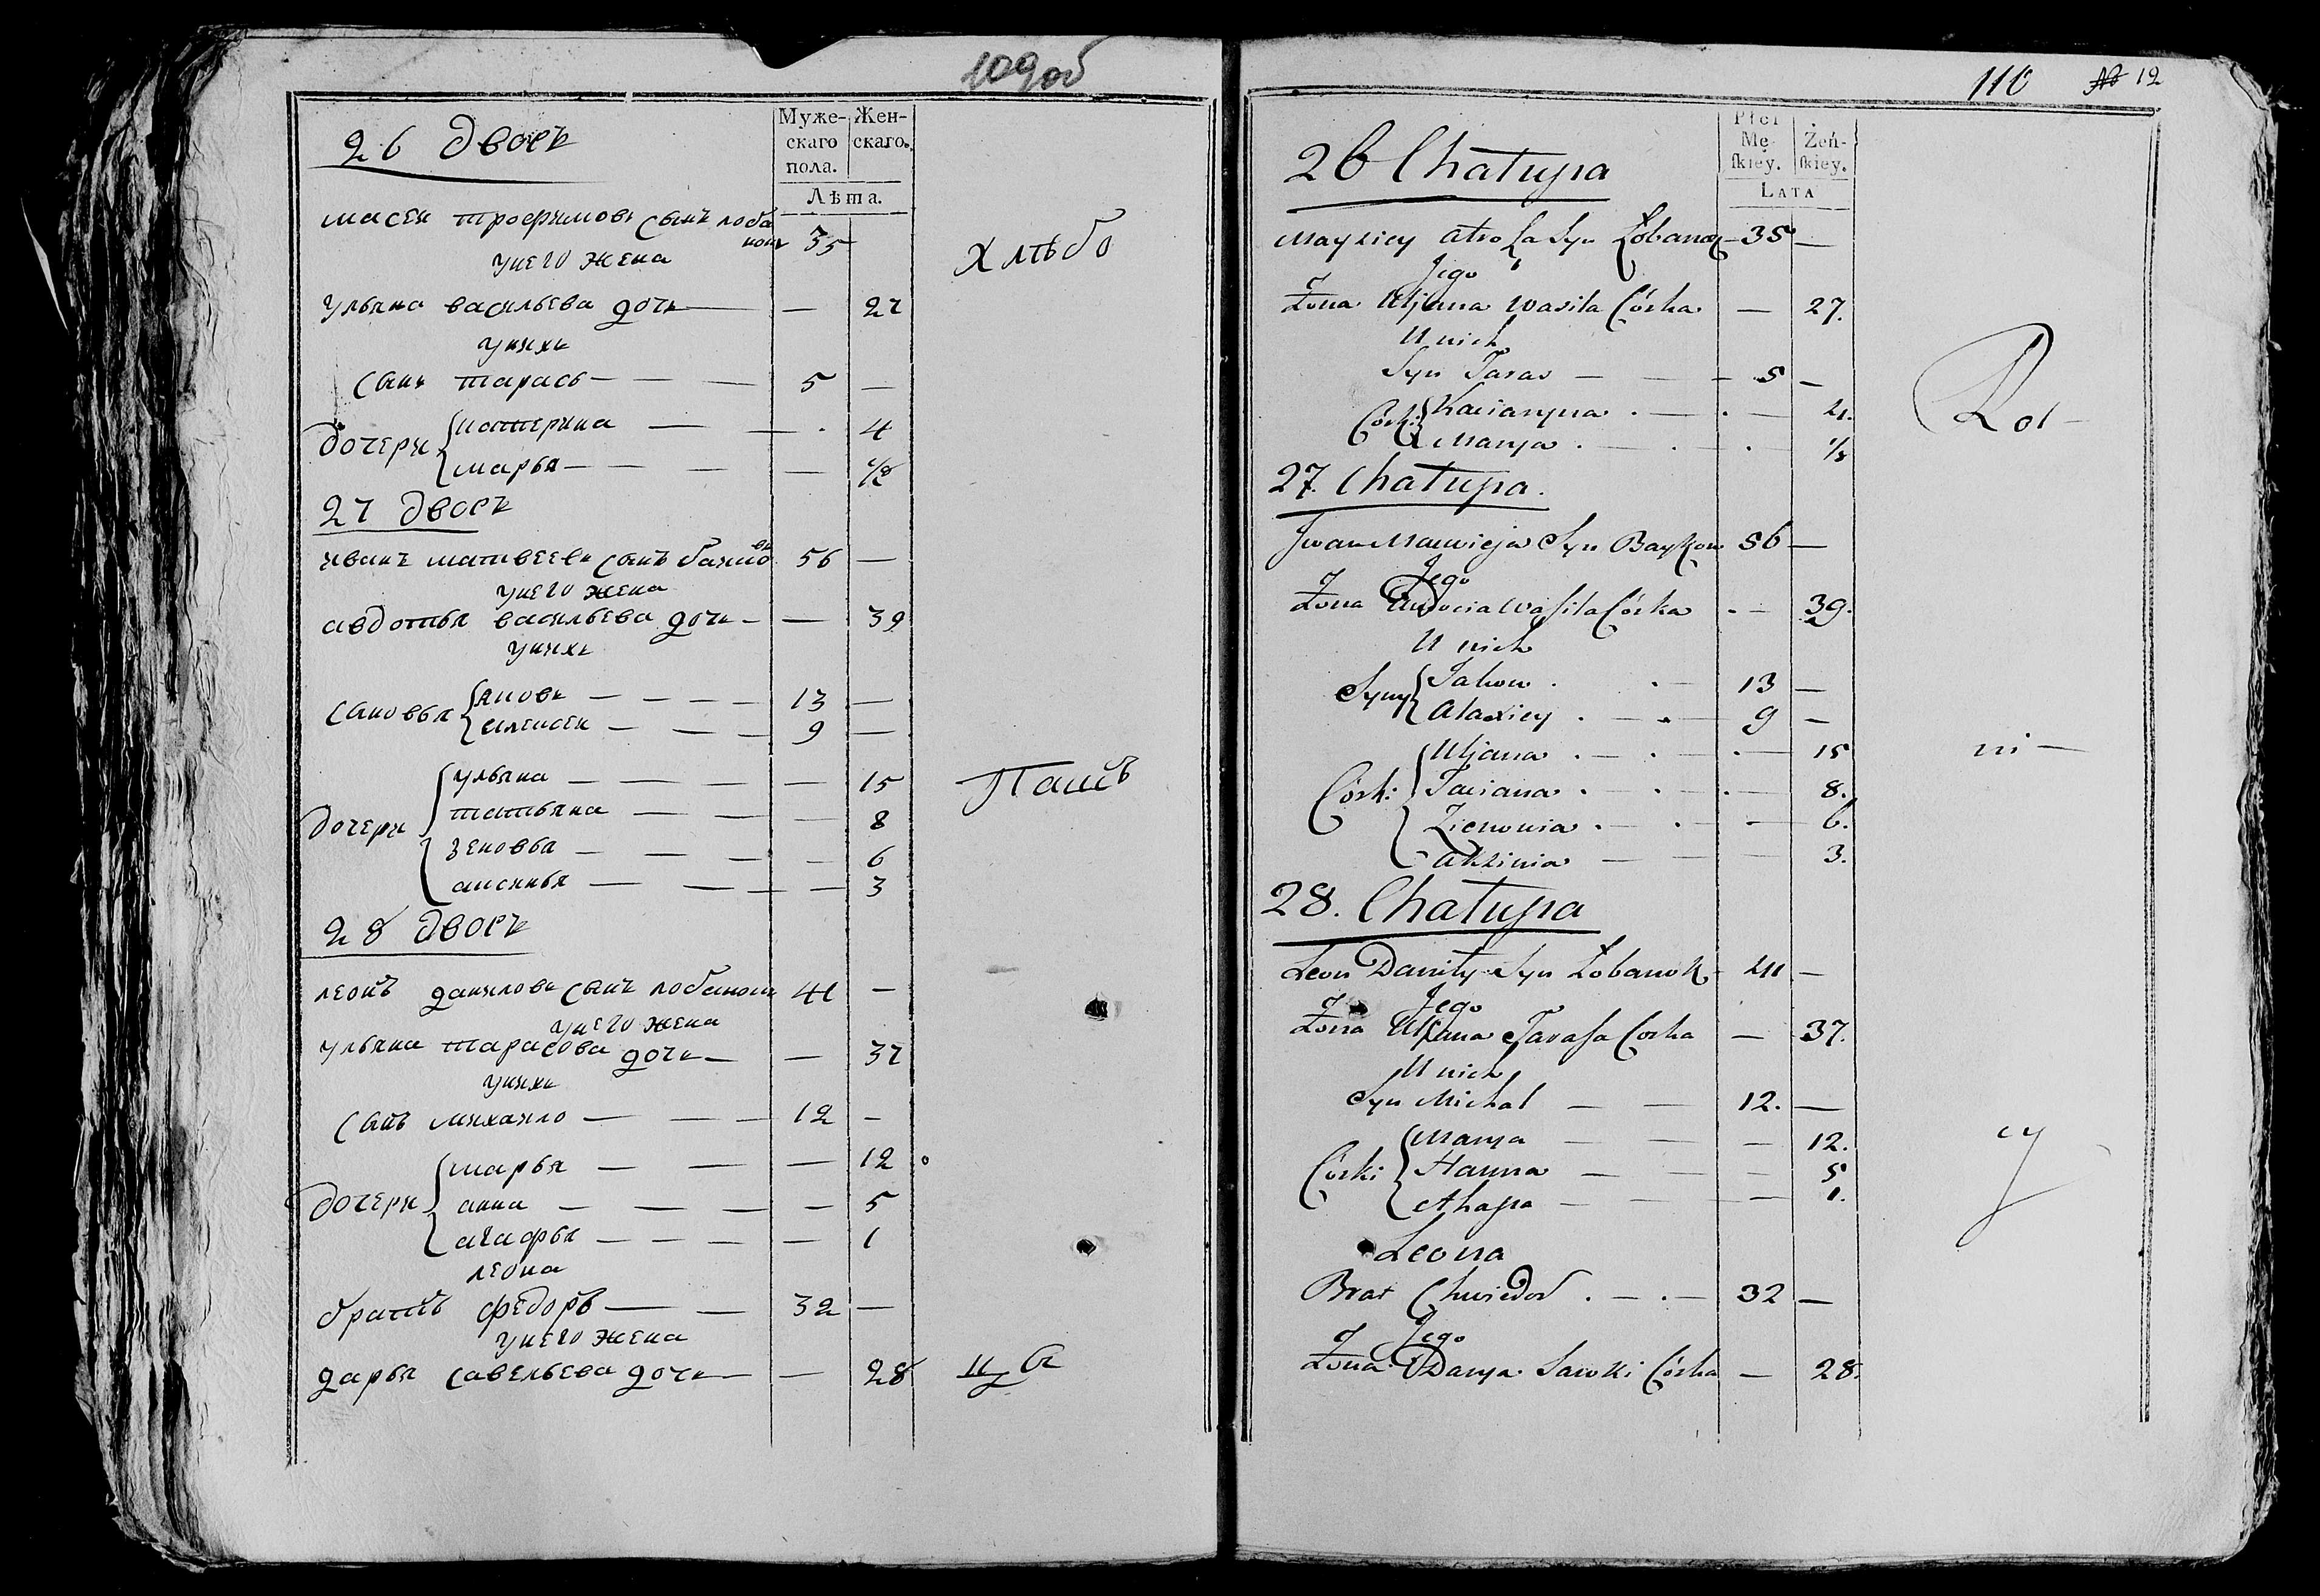 109 об
Муже-
скаго
пола.
Жен-
скаго.
Лѣта.
26 дворъ
масей трофимовъ сынъ лоба
нокъ 35
унего жена
Хлѣбо
ульяна васильева дочь — — 27
унихъ
сынъ тарасъ — — — 5 —
дочери
катерина — — . 4
марья — — — — 1/2
27 дворъ
иванъ матвеевъ сынъ байко
въ 56 —
унего жена
авдотья васильева дочь — — 39
унихъ
сыновья
яковъ — — — — 13 —
алексей — — — 9 —
дочери
ульяна — — — — 15
Пашъ
татьяна — — — — 8
зеновья — — — — 6
аксинья — — — — 3
28 дворъ
леонъ даниловъ сынъ лобанокъ 41 —
унего жена
ульяна тарасова дочь — — 37
унихъ
сынъ михайло — — — 12 —
дочери
марья — — — — 12
анна — — — — — 5
агафья — — — — — 1
леона
братъ федоръ — — 32 —
унего жена
дарья савельева дочь — — 28
цы
110 12
Płci
Mę-
ſkiey.
Żeń-
ſkiey.
LATA
26 Chałupa
Syn Łobanok — 35 —
Jego
Żona Uljana Wasila Córka — 27.
U nich
Syn Taras — — — 5 —
Rol-
Córki
Kaciaryna . — . — 4.
Marya . — . . 1/2
27. Chałupa.
Iwan Macwieja Syn Baykow 56 —
Jego
Żona Audocia Wasila Córka . — 39.
U nich
Syny
Jakow . . — 13 —
Alaxiey . — . 9 —
Córki
Uljana . — . — . — 15
ni —
Taciana . . — . — 8.
Zienowia . — . — — 6.
Akzinia — — — — 3.
28. Chałupa
Leon Daniły Syn Łobanok 41 —
Jego
Żona Uljana Tarasa Corka — 37.
U nich
Syn Michał — — 12. —
Córki
Marya — — — 12.
cy
Hanna — — — 5
Ahapa — — — 1.
Leona
Brat Chwiedor . — . — 32 —
Jego
Żona Darya Sawki Córka — 28.